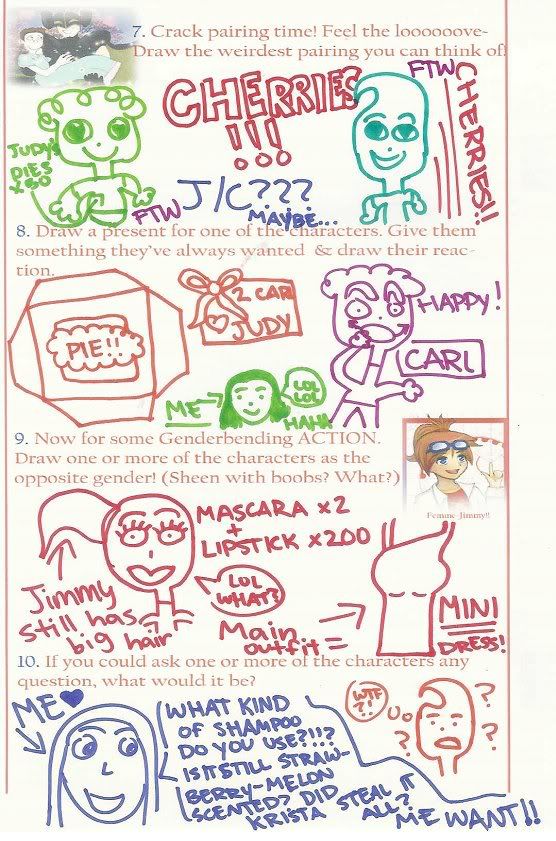 7. Crack pairing time! Feel the loooooove-
Draw the weirdest pairing you can think of!
CHERRIES
!!!
JUDY'S
PIES
x 50
FTW
J/C???
MAYBE...
FTW
CHERRIES!!
8. Draw a present for one of the characters. Give them
something they've always wanted & draw their reac-
tion.
PIE!!
2 CARL
JUDY
HAPPY!
CARL
ME
LOL
LOL
HAHA
9. Now for some Genderbending ACTION.
Draw one or more of the characters as the
opposite gender! (Sheen with boobs? What?)
Femme-Jimmy!!
MASCARA x2
+
LIPSTICK x200
LOL
WHAT?
Jimmy
still has
big hair
Main
outfit =
MINI
DRESS!
10. If you could ask one or more of the characters any
question, what would it be?
ME
WHAT KIND
OF SHAMPOO
DO YOU USE?!!?
IS IT STILL STRAW-
BERRY-MELON
SCENTED? DID
KRISTA STEAL IT
ALL?
ME WANT!!
WTF
?!
?
?
?